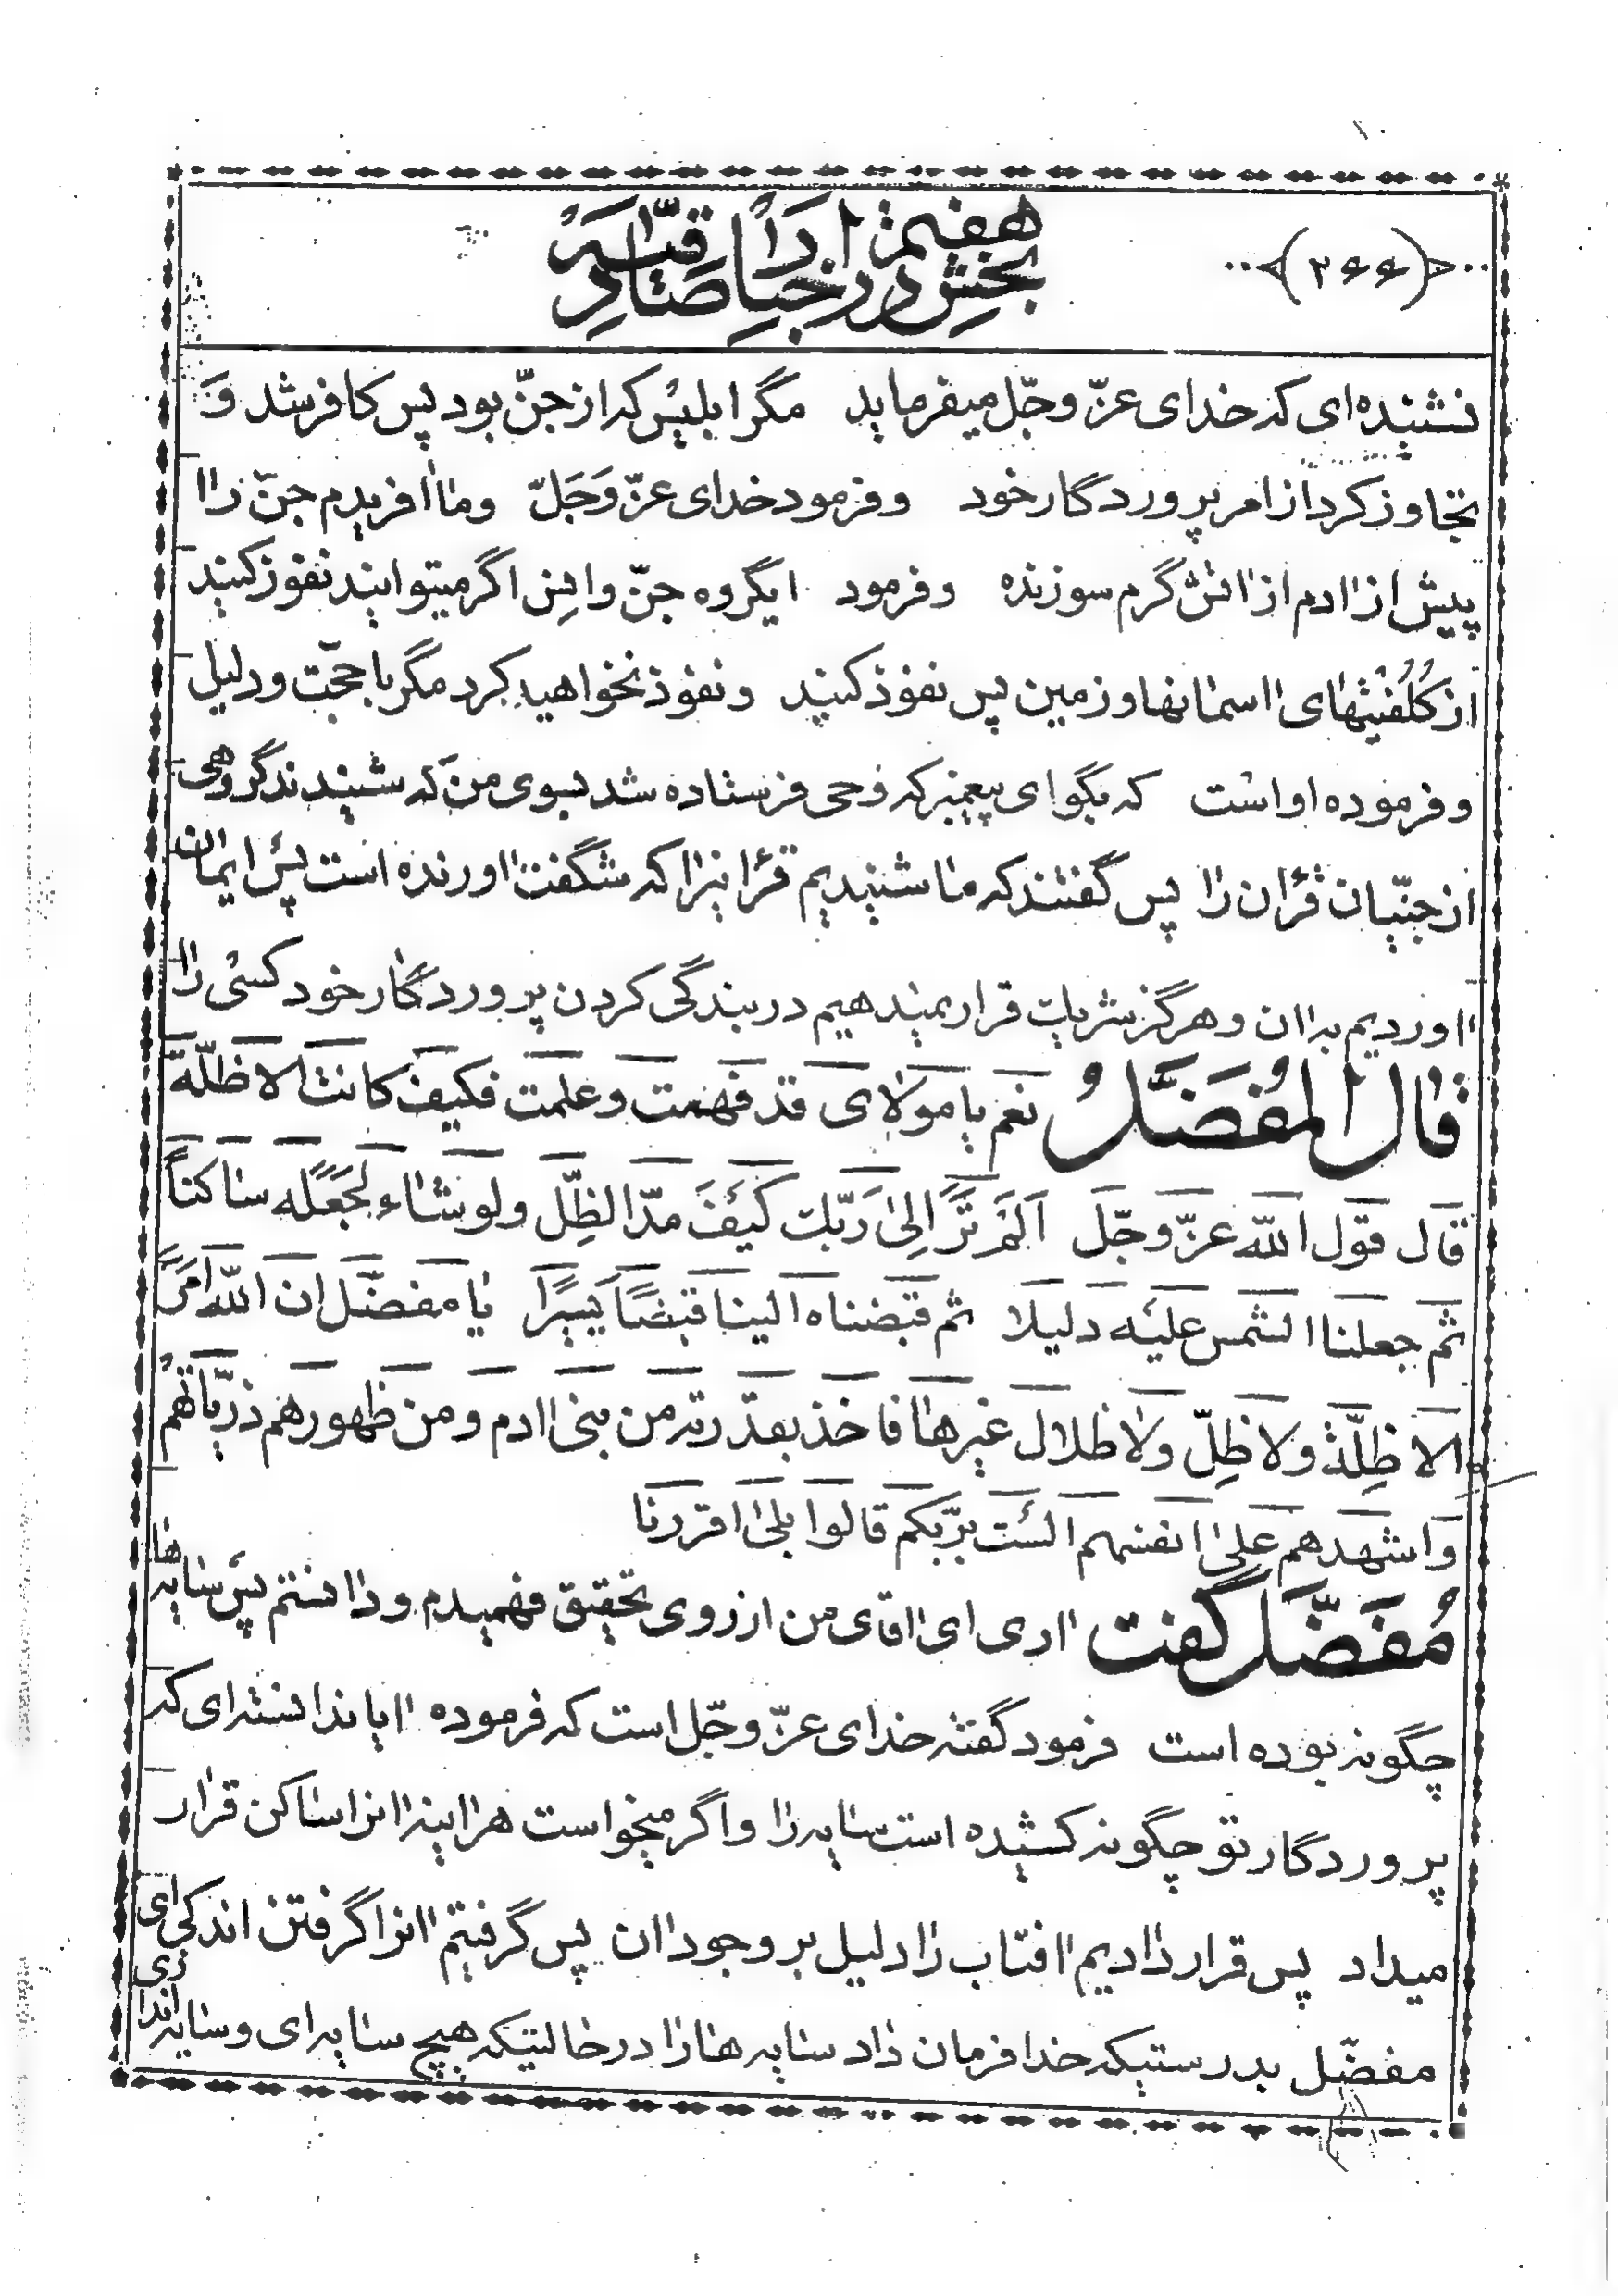 ﴿۲۶۶﴾
بخش هفتم در اخبار صادقیّه
نشنیده‌ای که خدای عزّ وجّل میفرماید مگر ابلیس که از جنّ بود پس کافر شد وَ
تجاوز کرد از امر پروردگار خود وفرمود خدای عزّ وَجَلّ وما آفریدم جنّ را
پیش از آدم از آتش گرم سوزنده وفرمود ایگروه جنّ وانِس اگر میتوانید نفوذ کنید
از کُلُفْتیهای آسمانها و زمین پس نفوذ کنید ونفوذ نخواهید کرد مگر با حجّت ودلیل
وفرموده او است که بگو ای پیغمبر که وحی فرستاده شد بسوی من که شنیدند گروهی
از جنّیان قرآن را پس گفتند که ما شنیدیم قرآنیرا که شگفت آورنده است پس ایمان
آوردیم بدان وهرگز شریک قرار نمیدهیم در بندگی کردن پروردگار خود کسی را
قال المُفَضَّلُ نعم یا مولای قد فهمت وعلمت فکیف کانت الاظلّة
قال قول اللّه عزّ وجّل اَلَمْ تَرَ اِلیٰ رَبّک کَیْفَ مدّ الظِلّ ولو شاء لَجَعَلَه ساکناً
ثم جعلنا الشمس علیْه دلیلا ثم قبضناه الینا قبضاً یَسیرًا یا مفضّل ان اللّه امر
الاظِلّة ولاظِلّ ولاظلال غیرها فاخذ بقدرته من بنی آدم ومن ظهورهم ذریّاتهم
وَاشهدهم علیٰ انفسهم الست بربّکم قالوا بلیٰ اقررنا
مُفَضَّل گفت آری ای آقای من از روی تحقیق فهمیدم ودانستم پس سایه‌ها
چگونه بوده است فرمود گفته خدای عزّ وجّل است که فرموده آیا ندانسته‌ای که
پروردگار تو چگونه کشیده است سایه را واگر میخواست هرآینه آنرا ساکن قرار
میداد پس قرار دادیم آفتاب را دلیل بر وجود آن پس گرفتیم آنرا گرفتن اندکی ای
مفضّل بدرستیکه خدا فرمان داد سایه‌ها را در حالتیکه هیچ سایه‌ای وسایه